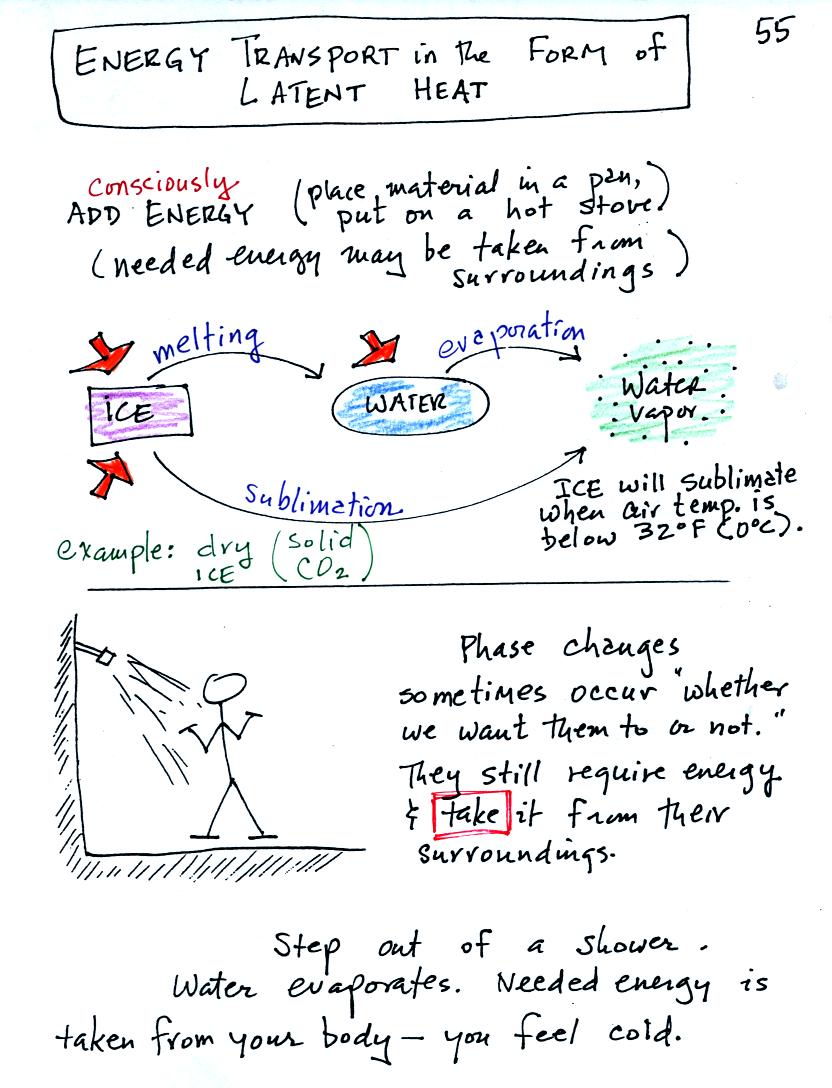 55
ENERGY TRANSPORT in the FORM of
LATENT HEAT
consciously
ADD ENERGY (place material in a pan,
put on a hot stove.)
(needed energy may be taken from
surroundings)
melting
evaporation
ICE
WATER
Water
vapor
sublimation
ICE will sublimate
when air temp. is
below 32°F (0°C).
example: dry (solid
ICE CO2)
Phase changes
sometimes occur "whether
we want them to or not."
They still require energy
& take it from their
surroundings.
Step out of a shower.
Water evaporates. Needed energy is
taken from your body — you feel cold.